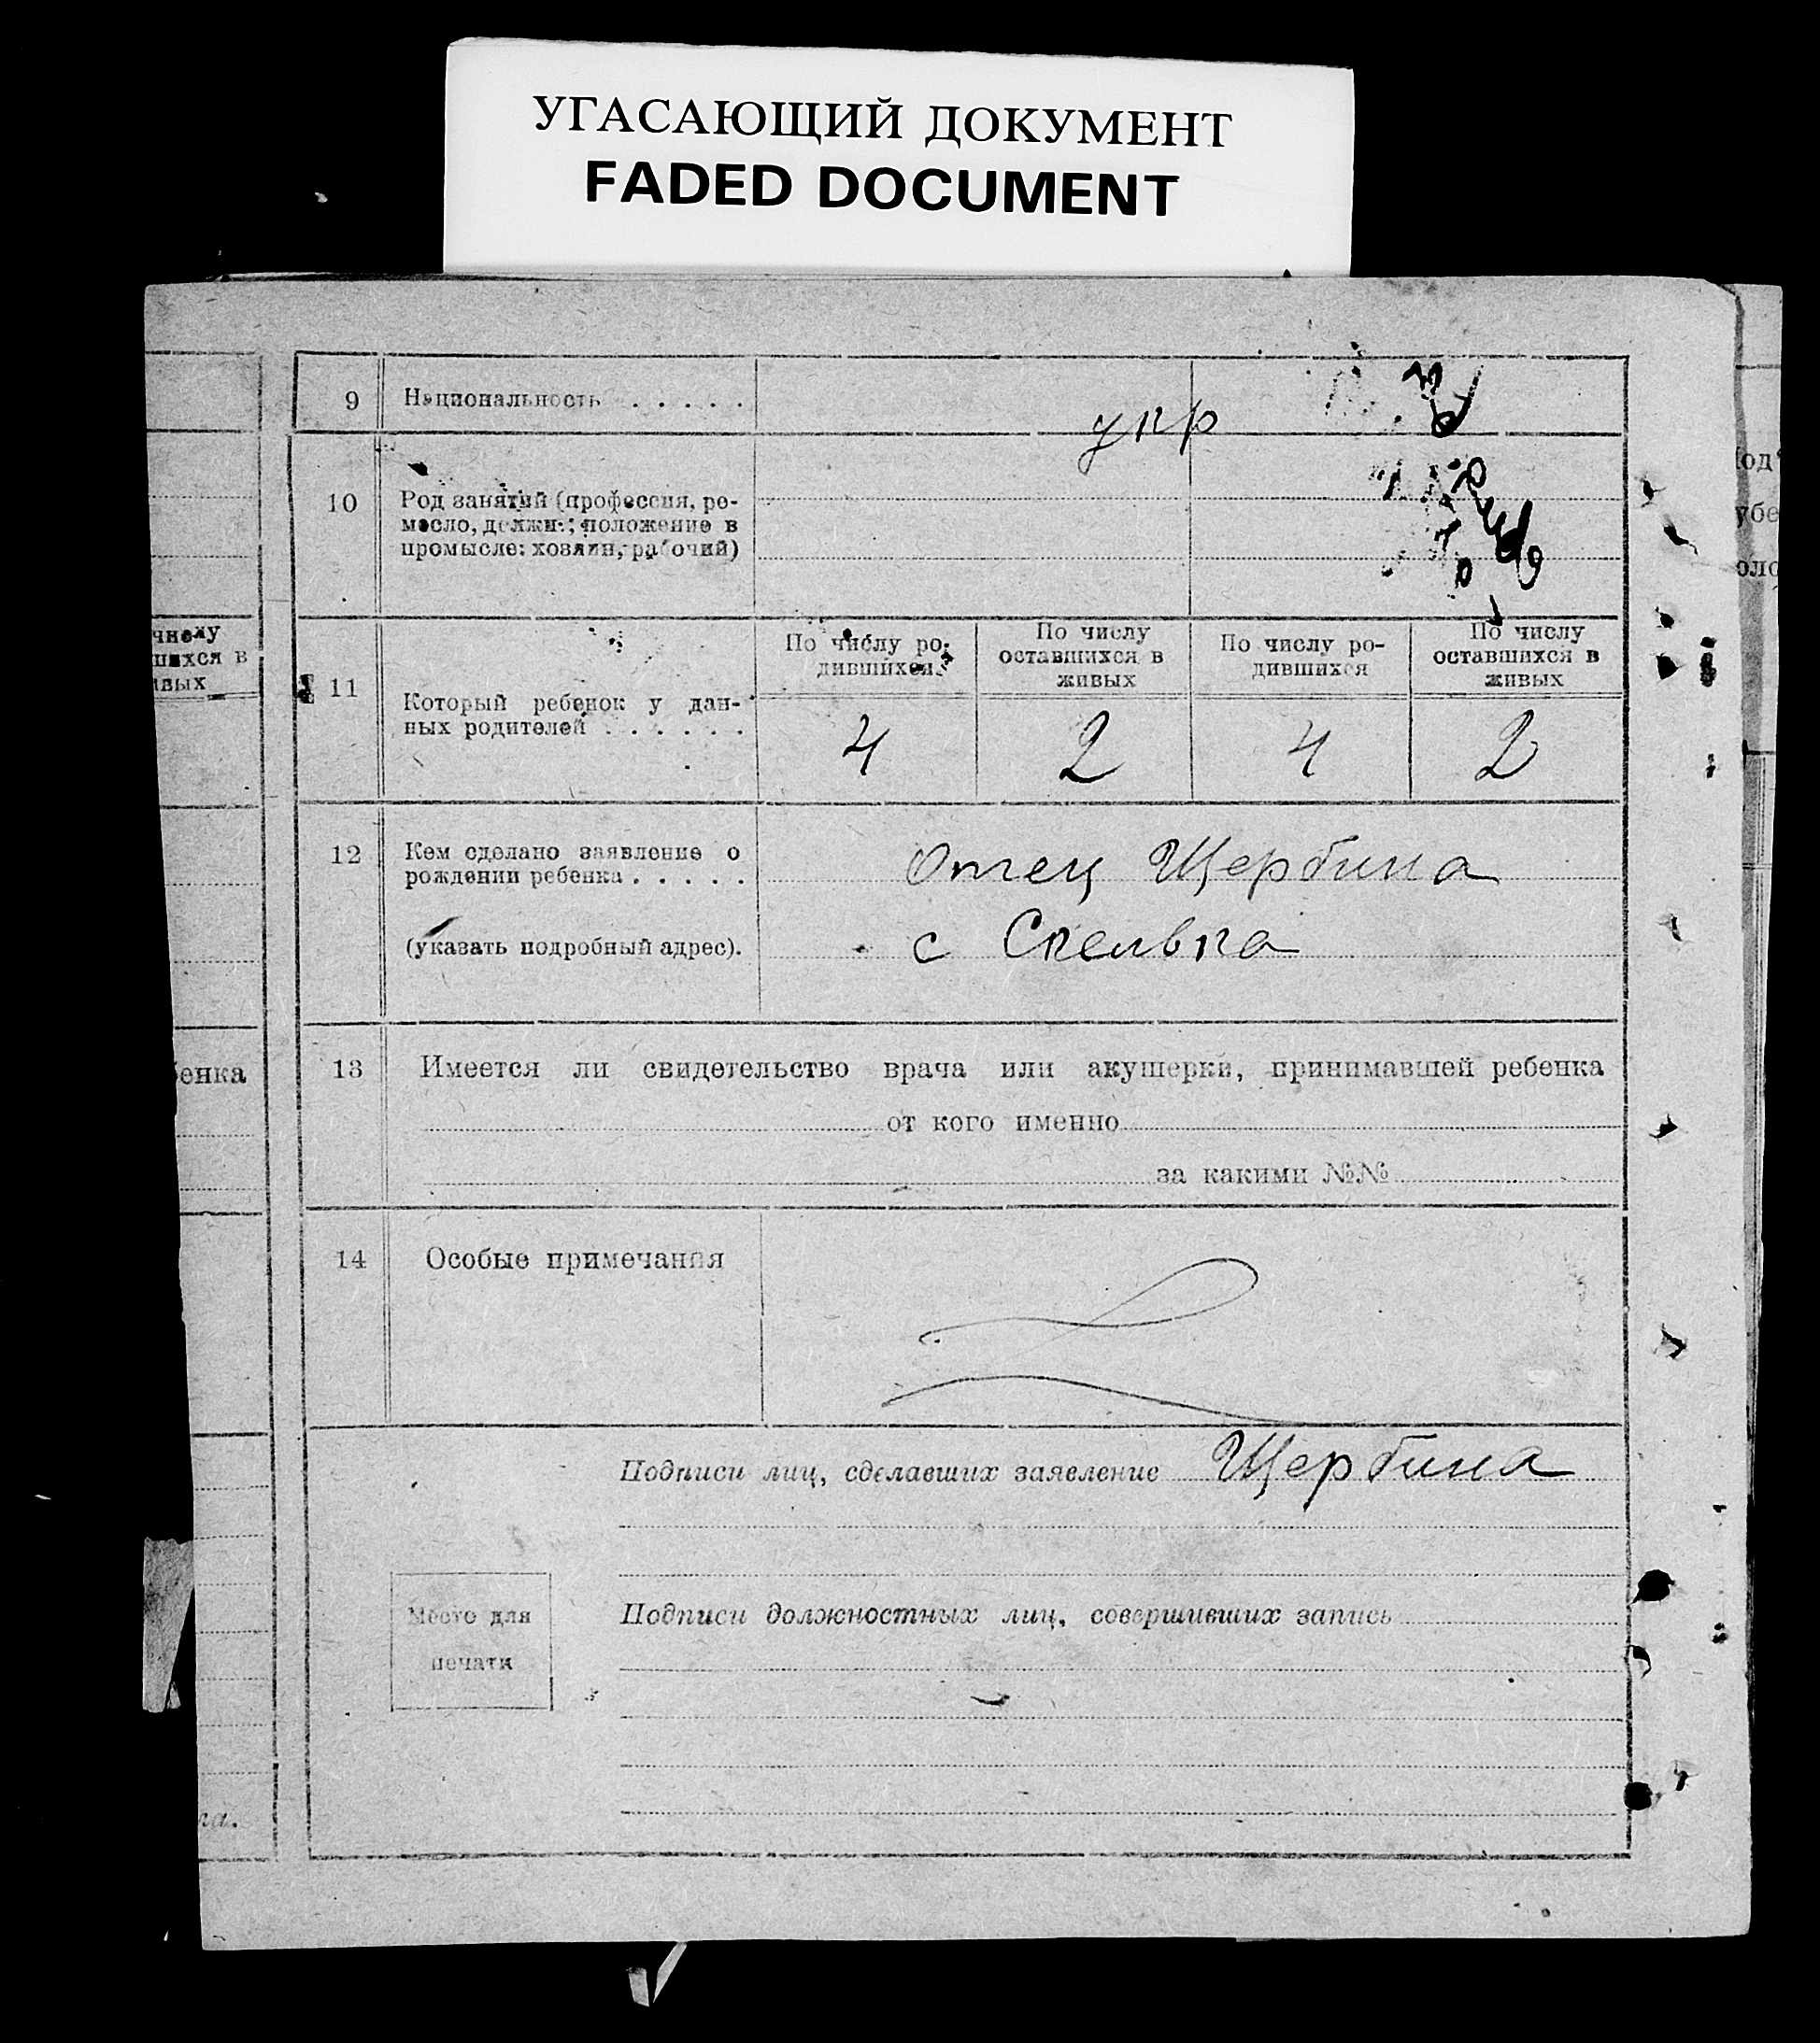 УГАСАЮЩИЙ ДОКУМЕНТ
FADED DOCUMENT
9 Национальность . . . . . укр
10 Род занятий (профессия, ре-
месло, должн.; положение в
промысле: хозяин, рабочий)
11 Который ребенок у дан-
ных родителей . . . . . .
По числу ро-
дившихся
По числу
оставшихся в
живых
По числу ро-
дившихся
По числу
оставшихся в
живых
4 2 4 2
12 Кем сделано заявление о
рождении ребенка . . . . .
(указать подробный адрес).
Отец Щербина
с Скелька
13 Имеется ли свидетельство врача или акушерки, принимавшей ребенка
от кого именно
за какими №№
14 Особые примечания
Подписи лиц, сделавших заявление Щербина
Место для
печати
Подписи должностных лиц, совершивших запись
числу
шихся в
ивых
бенка
ка.